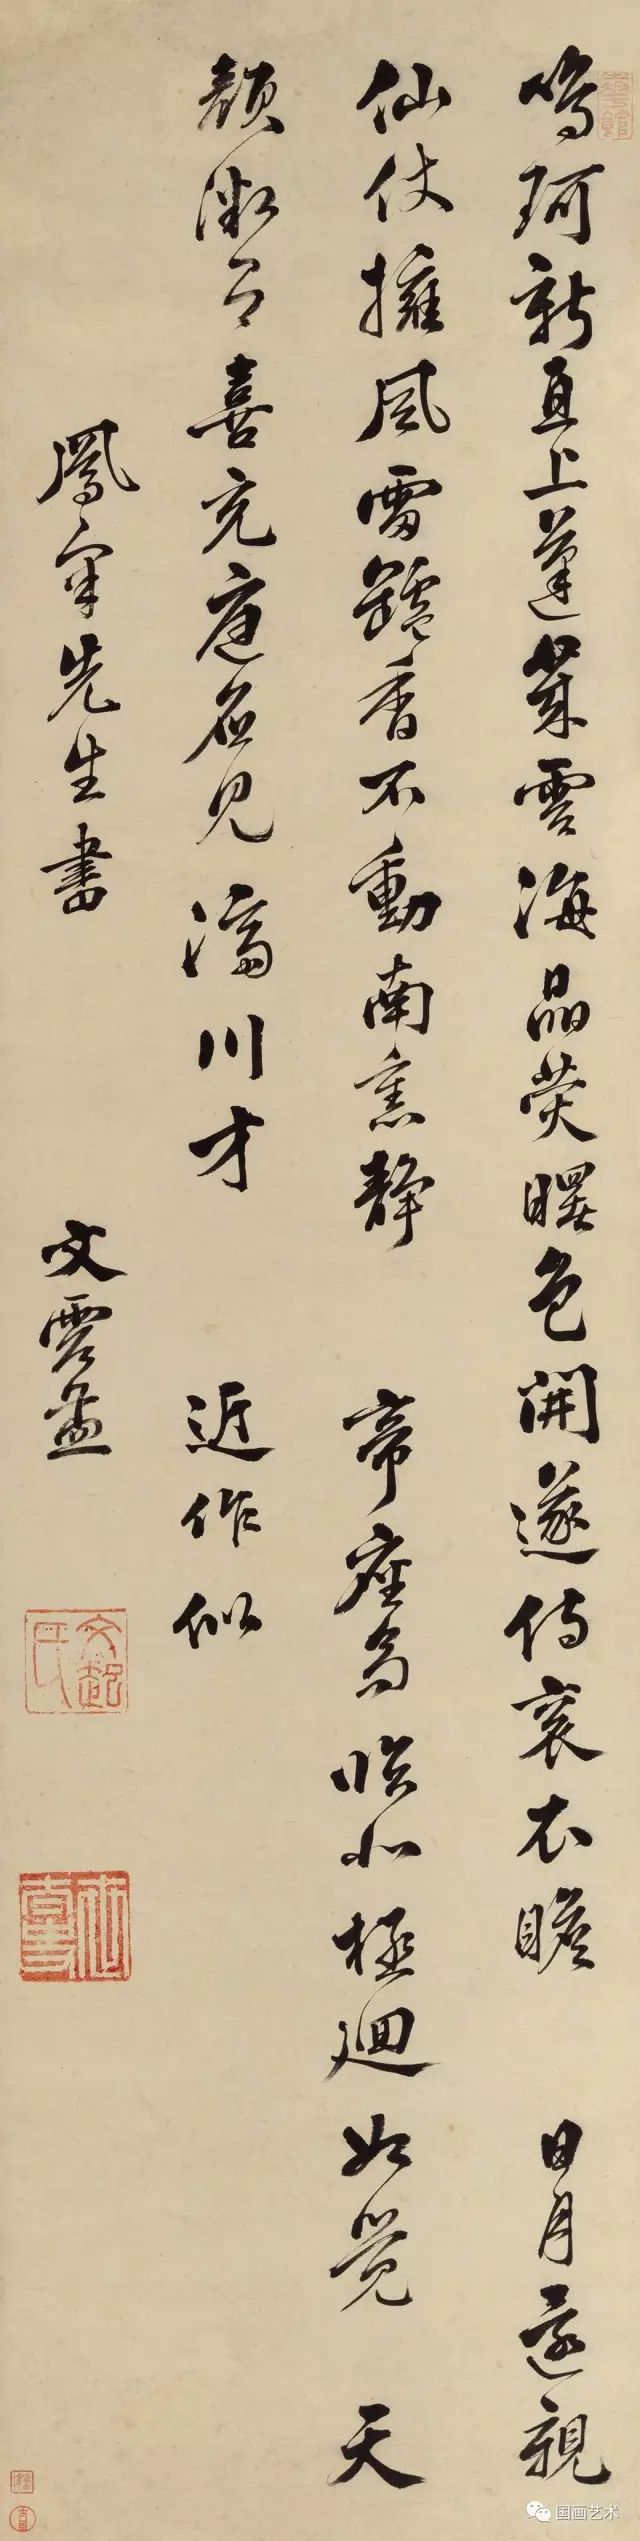 鳴珂新直上蓬萊雲海晶熒曙色開遂侍衮衣瞻 日月還親
仙仗擁風雷鑪香不動南熏靜 帝座高臨北極迴如覺 天
顏微有喜充庭見濟川才 近作似
鳳先生書 文震孟
文起氏
国画艺术